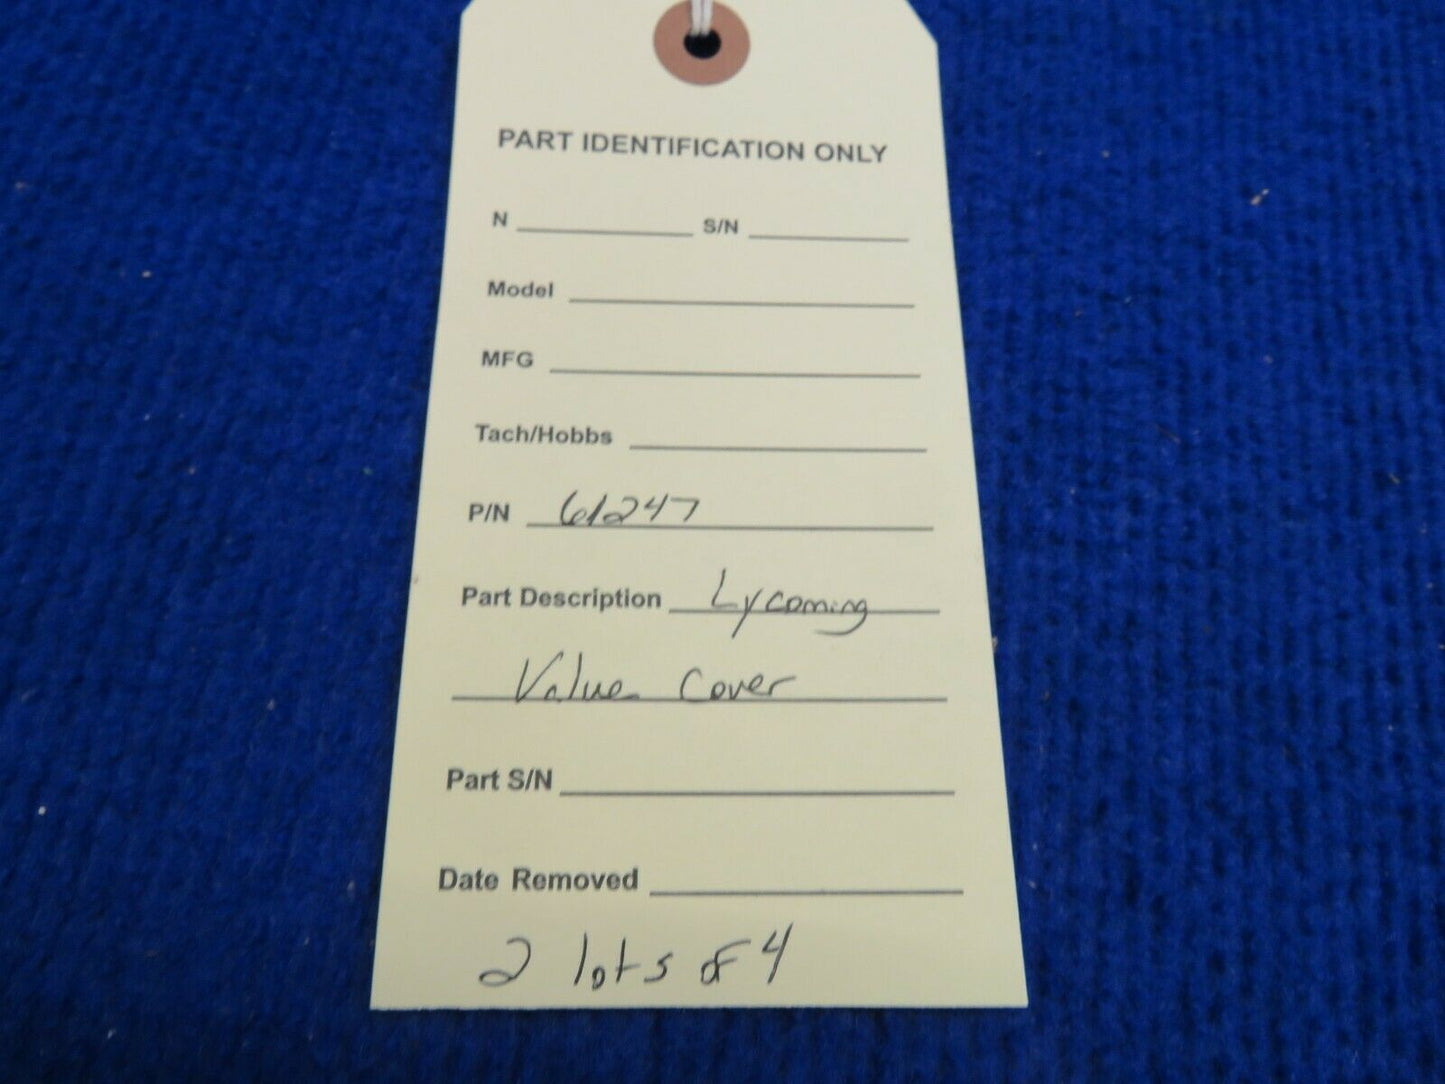 PART IDENTIFICATION ONLY
N S/N
Model
MFG
Tach/Hobbs
P/N 61247
Part Description Lycoming
Value Cover
Part S/N
Date Removed
2 lots of 4